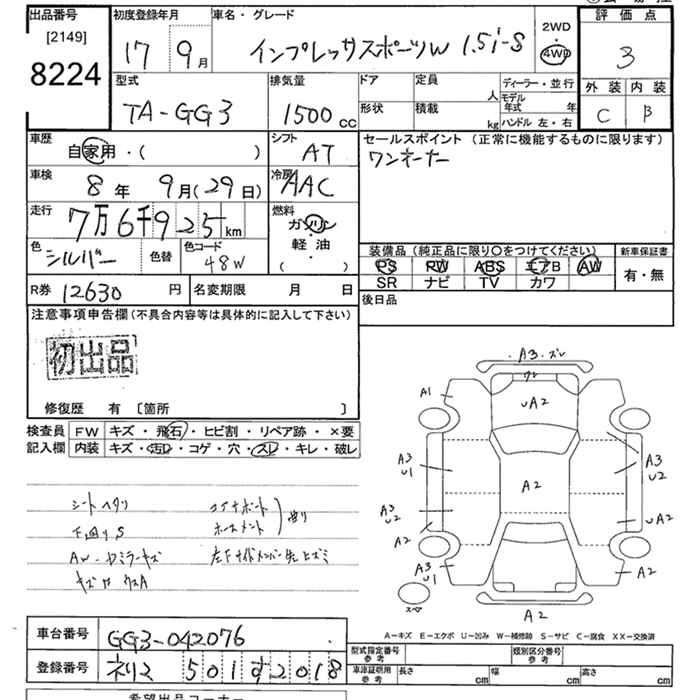 出品番号
[2149]
8224
初度登録年月
17 9月
車名・グレード
インプレッサスポーツW 1.5i-S
2WD
4WD
評価点
3
外装 内装
C B
型式
TA-GG3
排気量
1500 CC
ドア
形状
定員 人
積載 kg
ディーラー・並行
モデル年式 年
ハンドル 左・右
車歴
自家用・( )
シフト
AT
セールスポイント (正常に機能するものに限ります)
ワンオーナー
車検
8年 9月(29日)
冷房
AAC
走行
7万6千925km
燃料
ガソリン
軽油
( ・ )
色
シルバー
色替
色コード
48W
装備品(純正品に限り○をつけてください)
PS PW ABS エアB AW
SR ナビ TV カワ
新車保証書
有・無
R券 12630円
名変期限 月 日
後日品
注意事項申告欄(不具合内容等は具体的に記入して下さい)
初出品
修復歴 有 〔箇所 〕
検査員記入欄
FW キズ・飛石・ヒビ割・リペア跡・×要
内装 キズ・汚レ・コゲ・穴・スレ・キレ・破レ
シートヘタリ
下回りS
AW・ドアミラーキズ
コアサポート
ホースメント
曲り
A3・ズレ
ワレ
A1
UA2
A3
U1
A2
A3
U2
A3
U2
UA2
A2
A3
U1
A2
A2
スペア
A-キズ E-エクボ U-凹み W-補修跡 S-サビ C-腐食 XX-交換済
車台番号 GG3-042076
登録番号 501す2018
型式指定番号 参考
類別区分番号 参考
車庫証明用 参考
長さ cm
幅 cm
高さ cm
希望出品コーナー